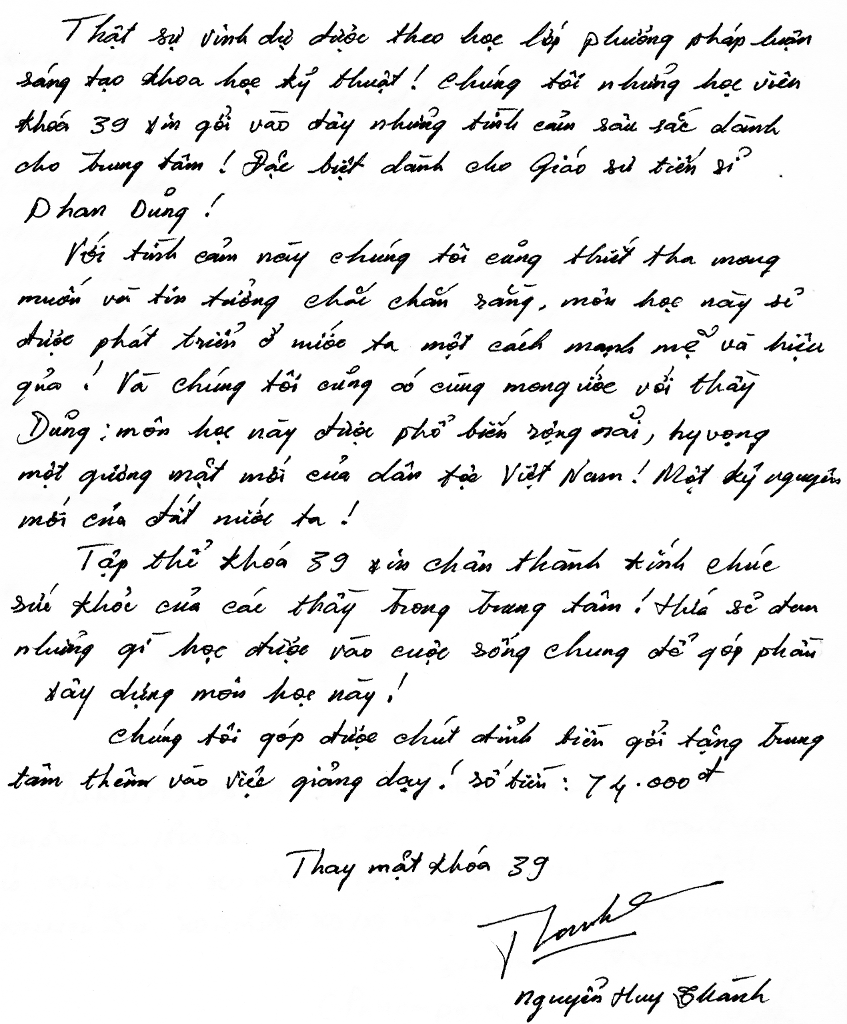 Thật sự vinh dự được theo học lớp phương pháp luận
sáng tạo khoa học kỹ thuật! Chúng tôi những học viên
khóa 39 xin gởi vào đây những tình cảm sâu sắc dành
cho trung tâm! Đặc biệt dành cho Giáo sư tiến sĩ
Phan Dũng!
Với tình cảm này chúng tôi cũng thiết tha mong
muốn và tin tưởng chắc chắn rằng, môn học này sẽ
được phát triển ở nước ta một cách mạnh mẽ và hiệu
quả! Và chúng tôi cũng có cùng mong ước với thầy
Dũng: môn học này được phổ biến rộng rãi, hy vọng
một gương mặt mới của dân tộc Việt Nam! Một kỷ nguyên
mới của đất nước ta!
Tập thể khóa 39 xin chân thành kính chúc
sức khỏe của các thầy trong trung tâm! Hứa sẽ đem
những gì học được vào cuộc sống chung để góp phần
xây dựng môn học này!
Chúng tôi góp được chút đỉnh tiền gởi tặng trung
tâm thêm vào việc giảng dạy! số tiền: 74.000đ
Thay mặt khóa 39
Nguyễn Huy Khánh